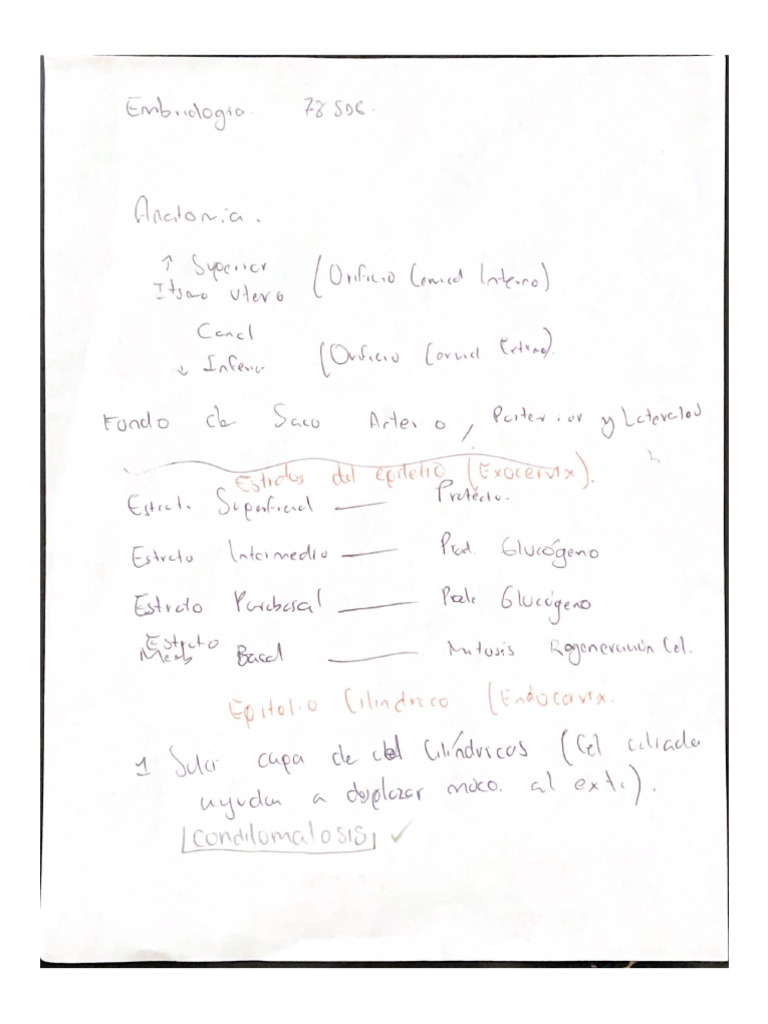 Embriologia. 78 SDC.
Anatomía.
↑ Superior (Orificio Cervical Interno)
Itsmo Utero
Canal
↓ Inferior (Orificio Cervical Externo).
Fondo de Saco Anterio, Posterior y Laterales
Estratos del epitelio (Exocervix).
Estrat. Superficial — Protecto.
Estrato Intermedio — Prod. Glucógeno
Estrato Parabasal — Glucógeno
Estrato
Basal — Mitosis Regeneración Cel.
Epitelio Cilindrico (Endocervix.
1 Sola capa de cel Cilíndricas (Cel ciliada
ayudan a desplazar moco. al ext.).
Condilomatosis ✓